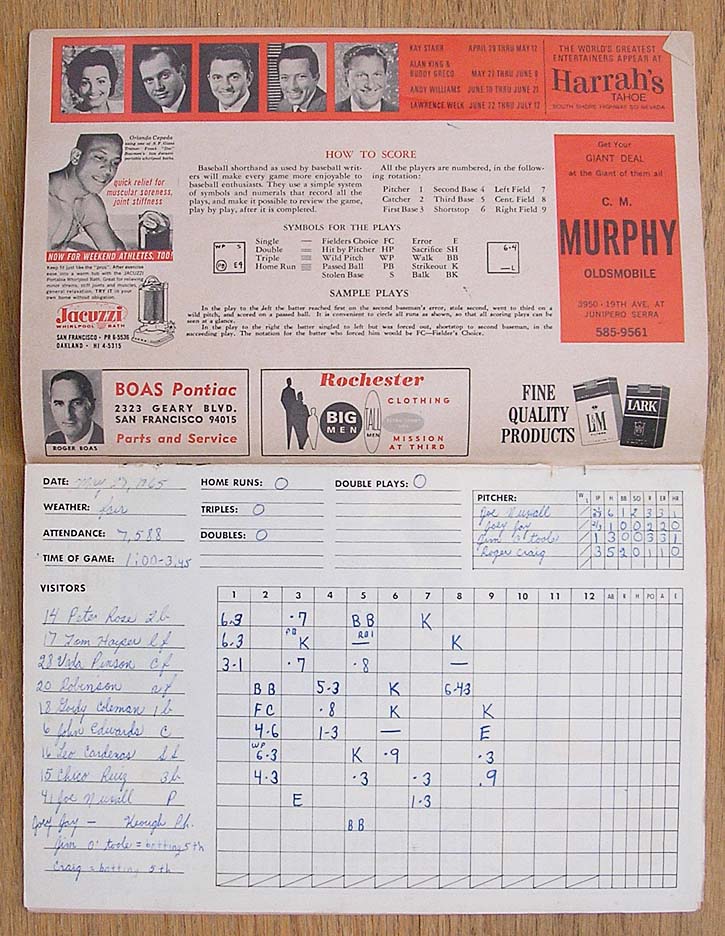 KAY STARR APRIL 29 THRU MAY 12
ALAN KING &
BUDDY GRECO MAY 27 THRU JUNE 9
ANDY WILLIAMS JUNE 10 THRU JUNE 21
LAWRENCE WELK JUNE 22 THRU JULY 12
THE WORLD'S GREATEST
ENTERTAINERS APPEAR AT
Harrah's
TAHOE
SOUTH SHORE HIGHWAY 50 NEVADA
Orlando Cepeda
using one of S.F. Giant
Trainer Frank "Doc"
Bowman's two Jacuzzi
portable whirlpool baths.
quick relief for
muscular soreness,
joint stiffness
NOW FOR WEEKEND ATHLETES, TOO!
Keep fit just like the "pros". After exercise
ease into a warm tub with the JACUZZI
Portable Whirlpool Bath. Great for relieving
minor strains, stiff joints and muscles,
general relaxation. TRY IT in your
own home without obligation.
Jacuzzi
WHIRLPOOL BATH
SAN FRANCISCO • PR 6-5536
OAKLAND • HI 4-5315
HOW TO SCORE
Baseball shorthand as used by baseball writ-
ers will make every game more enjoyable to
baseball enthusiasts. They use a simple system
of symbols and numerals that record all the
plays, and make it possible to review the game,
play by play, after it is completed.
All the players are numbered, in the follow-
ing rotation:
Pitcher 1 Second Base 4 Left Field 7
Catcher 2 Third Base 5 Cent. Field 8
First Base 3 Shortstop 6 Right Field 9
SYMBOLS FOR THE PLAYS
WP S
PB E4
Single — Fielders Choice FC Error E
Double = Hit by Pitcher HP Sacrifice SH
Triple ≡ Wild Pitch WP Walk BB
Home Run Passed Ball PB Strikeout K
Stolen Base S Balk BK
6-4
—
SAMPLE PLAYS
In the play to the left the batter reached first on the second baseman's error, stole second, went to third on a
wild pitch, and scored on a passed ball. It is convenient to circle all runs as shown, so that all scoring plays can be
seen at a glance.
In the play to the right the batter singled to left but was forced out, shortstop to second baseman, in the
succeeding play. The notation for the batter who forced him would be FC—Fielder's Choice.
Get Your
GIANT DEAL
at the Giant of them all
C. M.
MURPHY
OLDSMOBILE
3950 - 19TH AVE. AT
JUNIPERO SERRA
585-9561
ROGER BOAS
BOAS Pontiac
2323 GEARY BLVD.
SAN FRANCISCO 94015
Parts and Service
Rochester
CLOTHING
BIG
MEN
TALL
MEN
MISSION
AT THIRD
FINE
QUALITY
PRODUCTS
L&M
FILTERS
LARK
DATE: May 27, 1965 HOME RUNS: 0 DOUBLE PLAYS: 0
WEATHER: fair TRIPLES: 0
ATTENDANCE: 7,588 DOUBLES: 0
TIME OF GAME: 1:00-3:45
PITCHER: W L IP H BB SO R ER HR
Joe Nuxall 6 1 2 3 3 1
Joey Jay 1 0 0 2 2 0
Jim O'toole 1 3 0 0 3 3 1
Roger Craig 3 5 2 0 1 1 0
VISITORS 1 2 3 4 5 6 7 8 9 10 11 12 AB R H PO A E
14 Peter Rose 2b 6-3 •7 BB K
17 Tom Harper lf 6-3 PB K RBI — K
28 Vada Pinson cf 3-1 •7 •8 —
20 Robinson rf BB 5-3 K 6-43
18 Gordy Coleman 1b FC •8 K K
6 John Edwards C 4-6 1-3 — E
16 Leo Cardenas SS WP 6-3 K •9 •3
15 Chico Ruiz 3b 4-3 •3 •7-3 •9
41 Joe Nuxall P E 1-3
Joey Jay — Keough Ph. BB
Jim O'toole = batting 5th
Craig = batting 5th